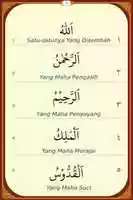 اللهُ
Satu-satunya Yang Disembah ١
الرَّحْمَنُ ٢
Yang Maha Pengasih
الرَّحِيْمُ ٣
Yang Maha Penyayang
الْمَلِكُ ٤
Yang Maha Merajai
الْقُدُّوْسُ ٥
Yang Maha Suci